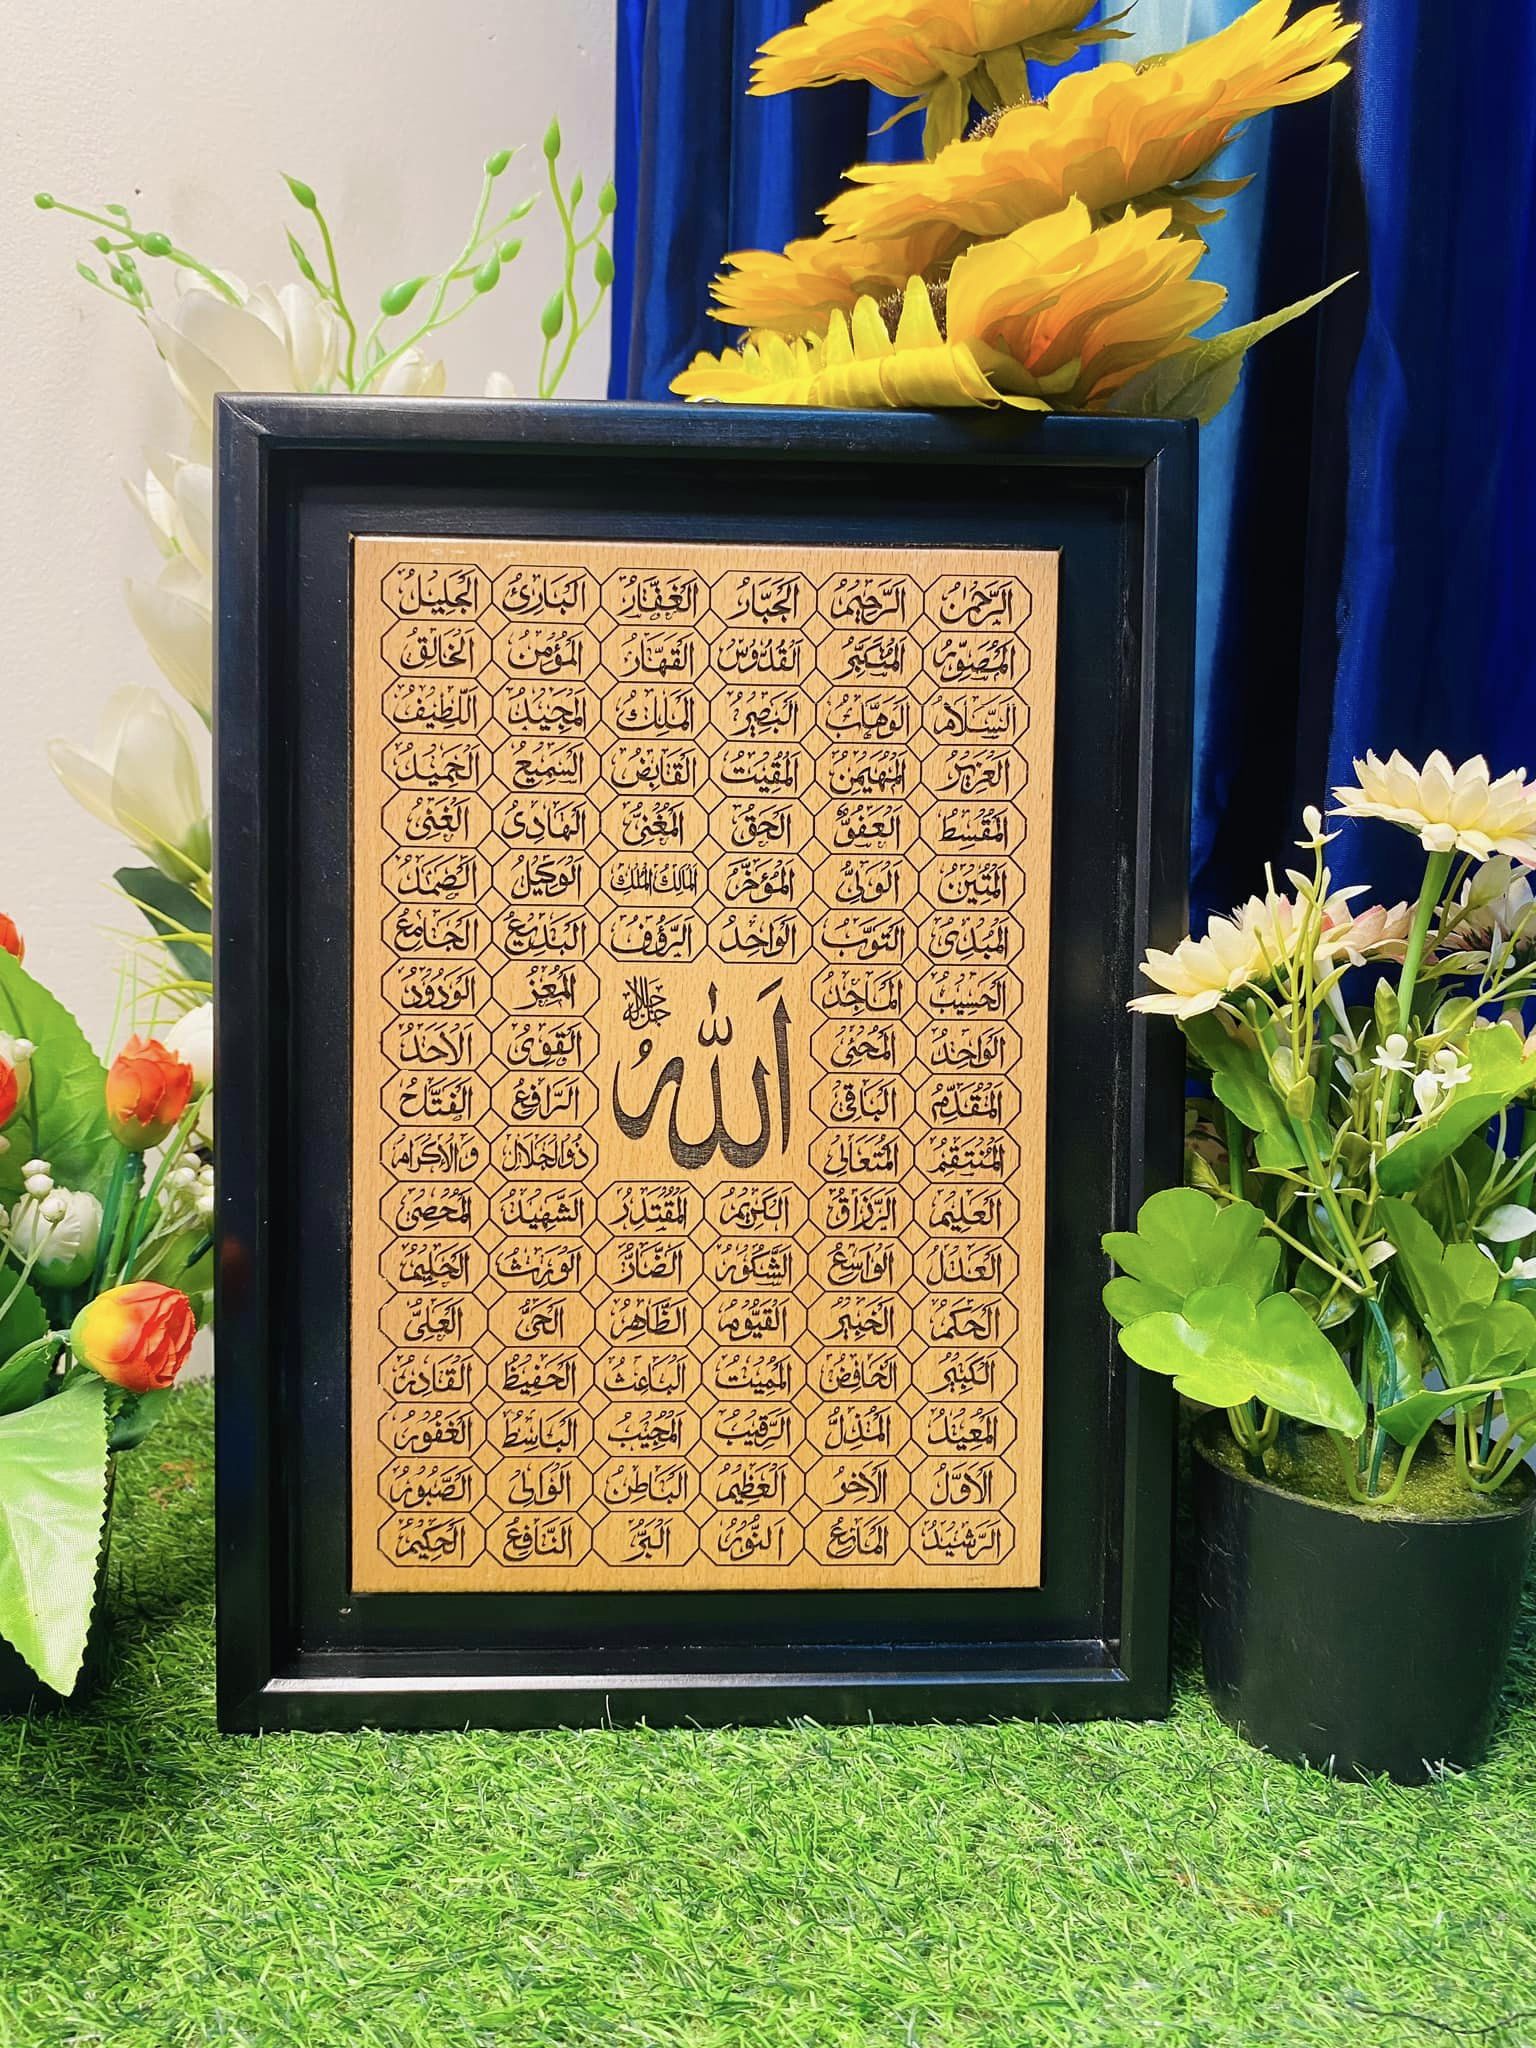 الرَّحْمٰنُ الرَّحِيْمُ الْجَبَّارُ الْغَفَّارُ الْبَارِئُ الْجَلِيْلُ
الْمُصَوِّرُ الْمُتَكَبِّرُ الْقُدُّوْسُ الْقَهَّارُ الْمُؤْمِنُ الْخَالِقُ
السَّلَامُ الْوَهَّابُ الْبَصِيْرُ الْمَلِكُ الْمَجِيْدُ اللَّطِيْفُ
الْعَزِيْزُ الْمُهَيْمِنُ الْمُقِيْتُ الْقَابِضُ السَّمِيْعُ الْحَمِيْدُ
الْمُقْسِطُ الْعَفُوُّ الْحَقُّ الْمُغْنِيُّ الْهَادِى الْغَنِىُّ
الْمَتِيْنُ الْوَلِىُّ الْمُؤَخِّرُ الْمَالِكُ الْمُلْكِ الْوَكِيْلُ الصَّمَدُ
الْمُبْدِئُ التَّوَّبُ الْوَاحِدُ الرَّؤُوْفُ الْبَدِيْعُ الْجَامِعُ
الْحَسِيْبُ الْمَاجِدُ جل جلاله الْمُعِزُّ الْوَدُوْدُ
الْوَاحِدُ الْمُحْيِى اللّٰهُ الْقَوِىُّ الْاَحَدُ
الْمُقَدِّمُ الْبَاقِى الرَّافِعُ الْفَتَّاحُ
الْمُنْتَقِمُ الْمُتَعَالِى ذُوالْجَلَالِ وَالْاِكْرَامِ
الْعَلِيْمُ الرَّزَّاقُ الْكَرِيْمُ الْمُقْتَدِرُ الشَّهِيْدُ الْمُحْصِىُ
الْعَدْلُ الْوَاسِعُ الشَّكُوْرُ الضَّارُّ الْوَرِثُ الْحَلِيْمُ
الْحَكَمُ الْخَبِيْرُ الْقَيُّوْمُ الظَّاهِرُ الْحَىُّ الْعَلِىُّ
الْكَبِيْرُ الْخَافِضُ الْمُمِيْتُ الْبَاعِثُ الْحَفِيْظُ الْقَادِرُ
الْمُعِيْدُ الْمُذِلُّ الرَّقِيْبُ الْمُجِيْبُ الْبَاسِطُ الْغَفُوْرُ
الْاَوَّلُ الْاٰخِرُ الْعَظِيْمُ الْبَاطِنُ الْوَالِى الصَّبُوْرُ
الرَّشِيْدُ الْمَانِعُ النُّوْرُ الْبَرُّ النَّافِعُ الْحَكِيْمُ